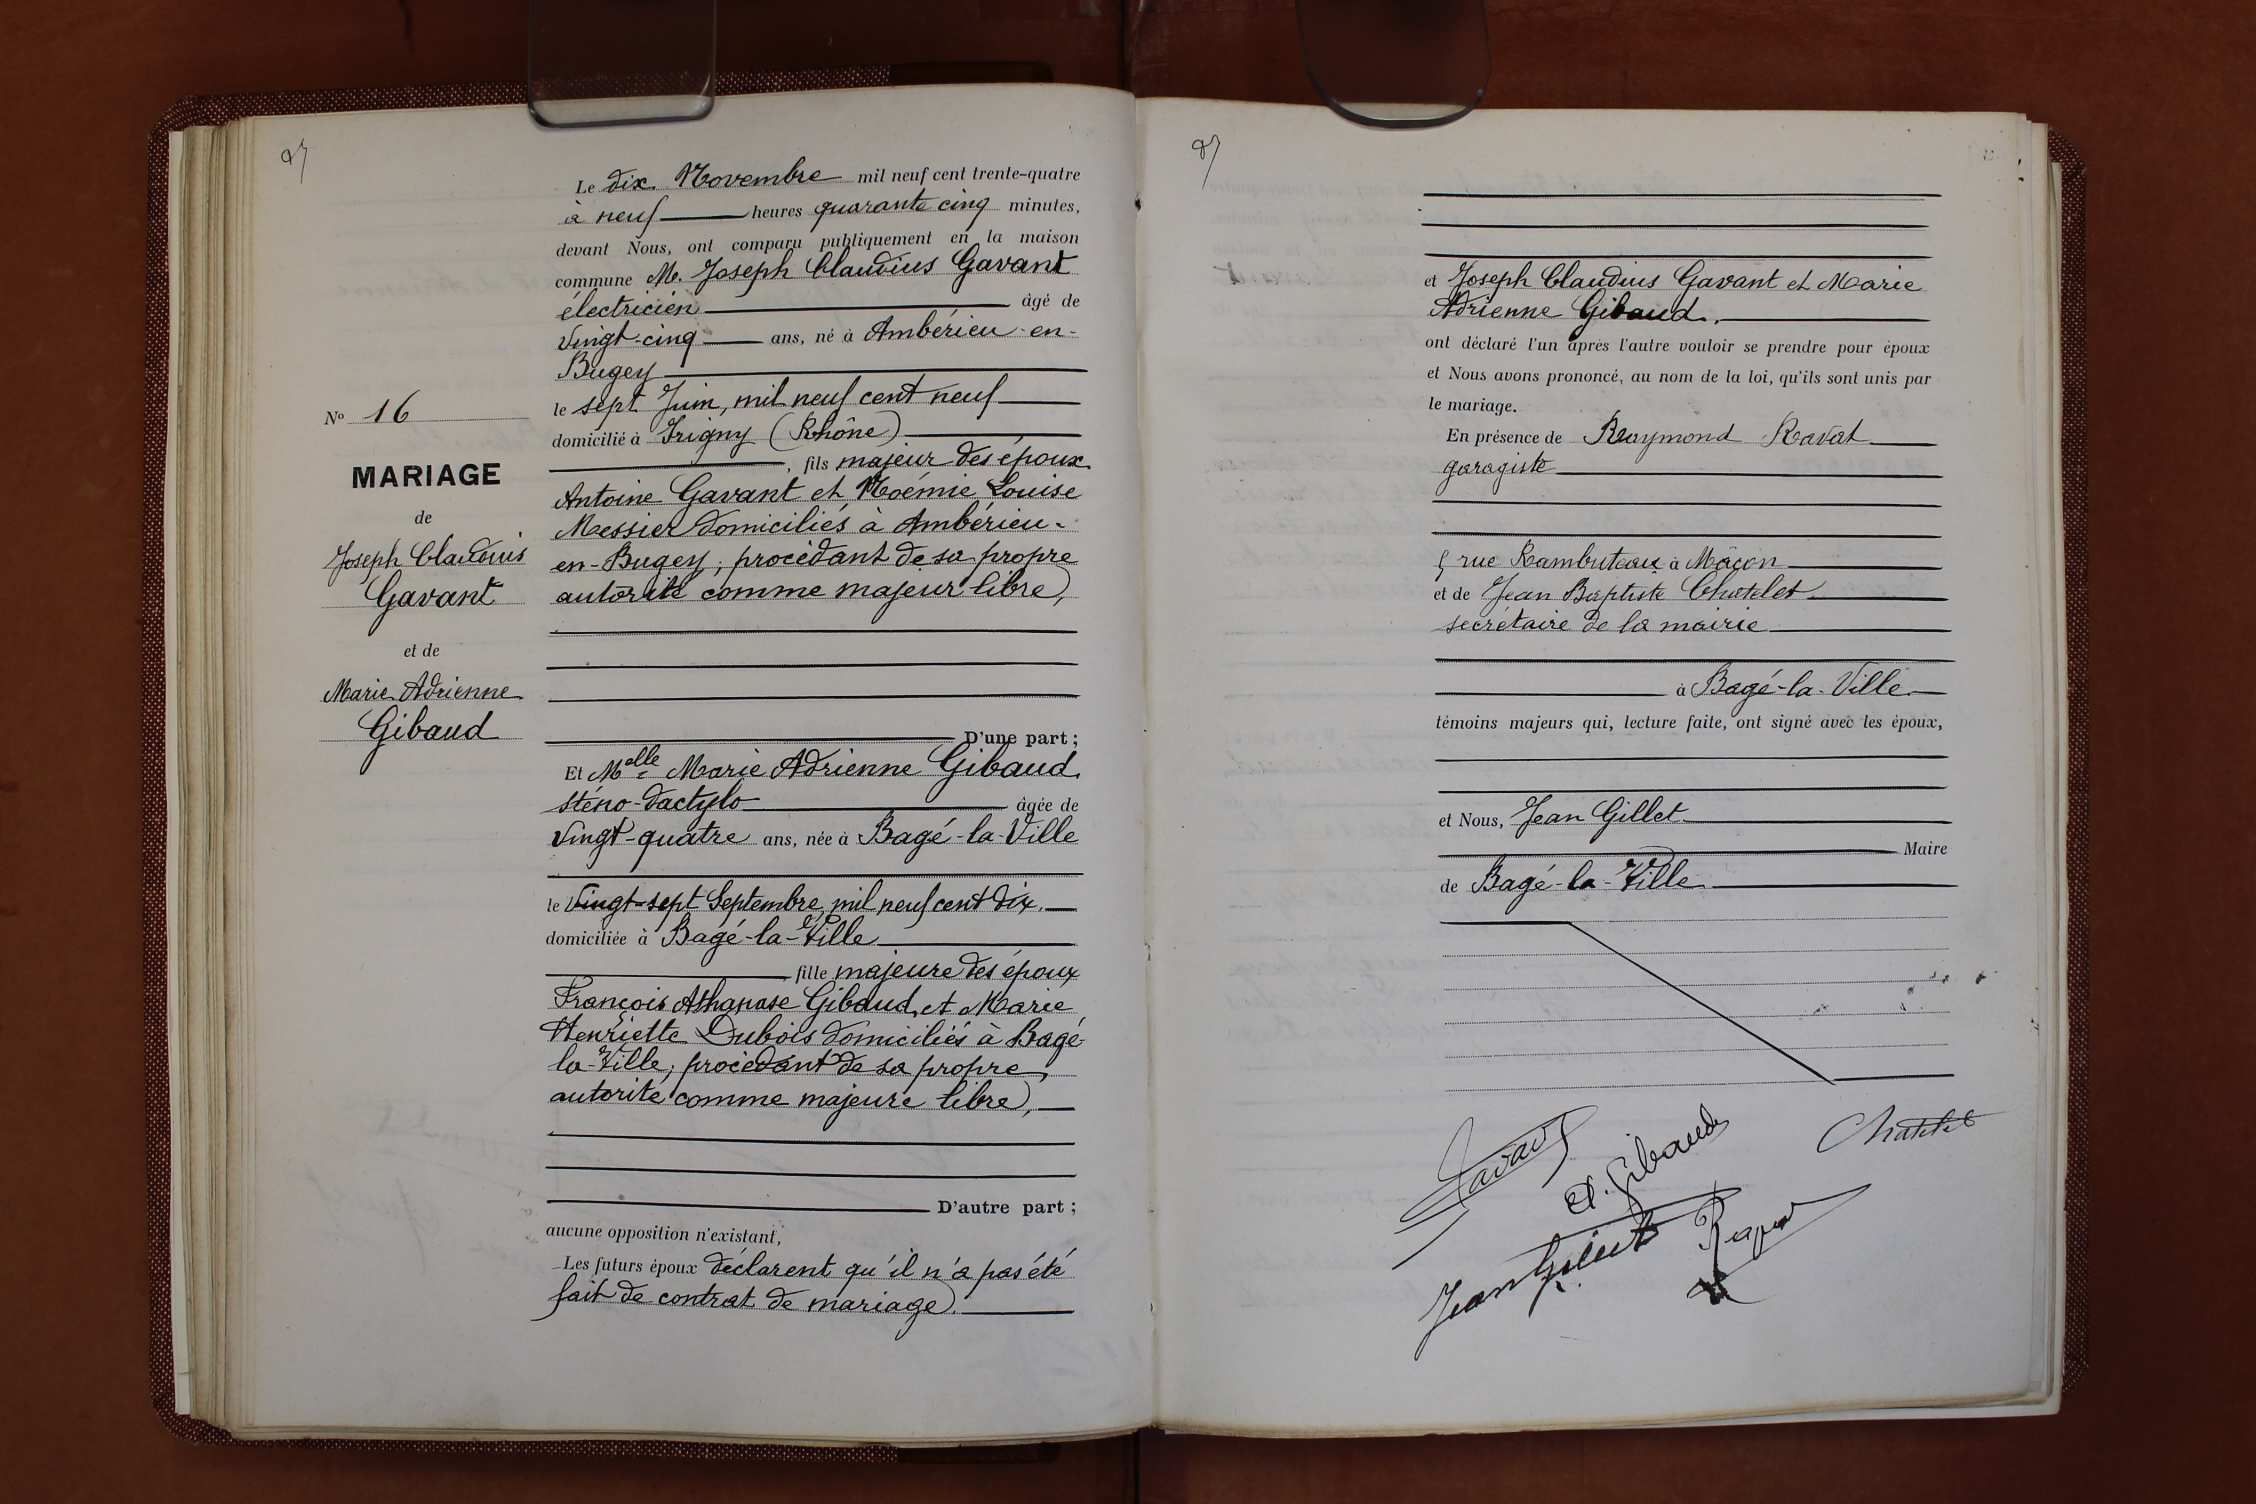 Le dix Novembre mil neuf cent trente-quatre
à neuf heures quarante cinq minutes,
devant Nous, ont comparu publiquement en la maison
commune M. Joseph Claudius Gavant
électricien âgé de
vingt-cinq ans, né à Ambérieu-en-
Bugey
le sept Juin, mil neuf cent neuf
domicilié à Irigny (Rhône)
, fils majeur des époux
Antoine Gavant et Noémie Louise
Messier domiciliés à Ambérieu-
en-Bugey, procédant de sa propre
autorité comme majeur libre,
D'une part ;
Et Melle Marie Adrienne Gibaud
sténo-dactylo âgée de
vingt-quatre ans, née à Bagé-la-Ville
le vingt-sept Septembre, mil neuf cent dix
domiciliée à Bagé-la-Ville
fille majeure des époux
François Athanase Gibaud, et Marie
Henriette Dubois domiciliés à Bagé-
la-Ville, procédant de sa propre
autorité comme majeure libre,
D'autre part ;
aucune opposition n'existant,
Les futurs époux déclarent qu'il n'a pas été
fait de contrat de mariage.
No 16
MARIAGE
de
Joseph Claudius
Gavant
et de
Marie Adrienne
Gibaud
et Joseph Claudius Gavant et Marie
Adrienne Gibaud.
ont déclaré l'un après l'autre vouloir se prendre pour époux
et Nous avons prononcé, au nom de la loi, qu'ils sont unis par
le mariage.
En présence de Raymond Ravat
garagiste
5 rue Rambuteau à Mâcon
et de Jean Baptiste Chatelet
secrétaire de la mairie
à Bagé-la-Ville
témoins majeurs qui, lecture faite, ont signé avec les époux,
et Nous, Jean Gillet
Maire
de Bagé-la-Ville
Gavant
A. Gibaud
Chatelet
Jean Gillet